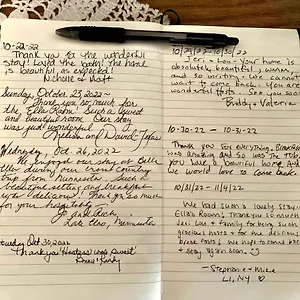 10-22-22
Thank you for the wonderful
stay! Loved the tarts! The home
is beautiful as expected!
Nichole & Matt
Sunday October 23, 2022~
Thank you so much for
the Ella Room. Such a sweet
and beautiful room. Our stay
was just wonderful.
Wednesday Oct. 26, 2022
We enjoyed our stay at Bella
during our cross country
trip from Minnesota. Such a
beautiful setting and breakfast
was delicious! Thank you so much
for your hospitality -
Lake Elmo, Minnesota
Sunday Oct 30, 2022
Thank you Hostess was Great
10/29/22 - 10/30/22
Jeri & Lou - Your home is
absolutely beautiful, warm,
and so inviting. We cannot
wait to come back. You are
wonderful hosts. See you soon
Buddy & Valerie
10-30-22 - 10-31-22
Thank you for everything. Breakfast
was amazing and so was the tour.
You have a beautiful home. And
we would love to come back
10/31/22 - 11/4/22
We had such a lovely stay in
Ella's Room! Thank you so much
Jeri, Lou & Family for being such
gracious hosts & for the delicious
breakfasts! We hope to come back
& stay again soon.
- Stephanie & Mike
LI, NY